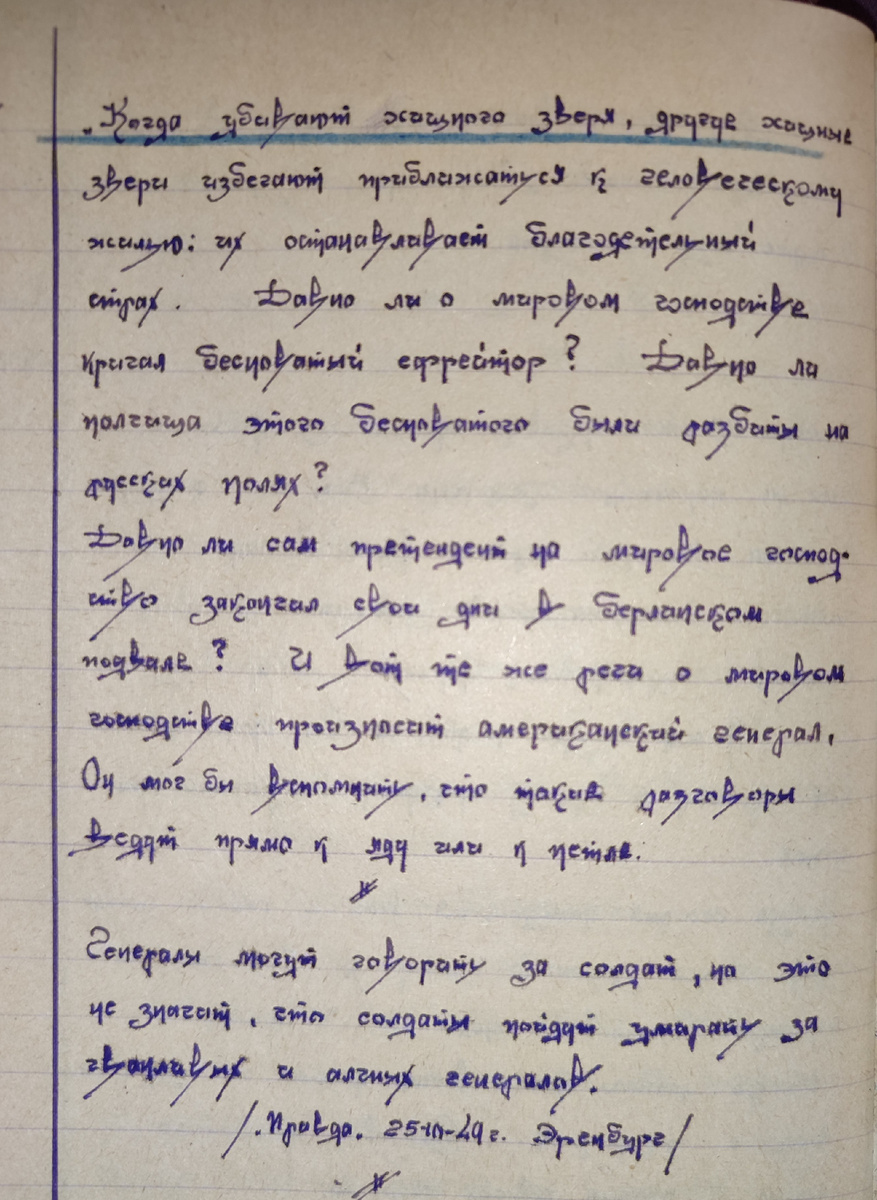 „Когда убивают хищного зверя, другие хищные
звери избегают приближаться к человеческому
жилью: их останавливает благодетельный
страх. Давно ли о мировом господстве
кричал бесноватый ефрейтор? Давно ли
полчища этого бесноватого были разбиты на
русских полях?
Давно ли сам претендент на мировое господ-
ство закончил свои дни в берлинском
подвале? И вот те же речи о мировом
господстве произносит американский генерал.
Он мог бы вспомнить, что такие разговоры
ведут прямо к яду или к петле.
Генералы могут говорить за солдат, но это
не значит, что солдаты пойдут умирать за
чванливых и алчных генералов.
/„Правда. 49г. Эренбург/